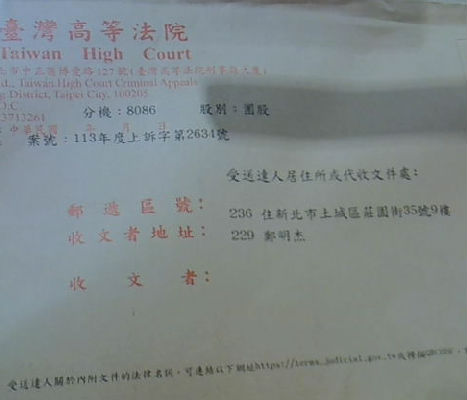 臺灣高等法院
Taiwan High Court
北市中正區博愛路127號(臺灣高等法院刑事庭大廈)
Rd., Taiwan High Court Criminal Appeals
District, Taipei City, 100205
O.C
23713261
分機:8086 股別:團股
中華民國 年 月 日
案號:113年度上訴字第2634號
受送達人居住所或代收文件處:
郵遞區號:
236 住新北市土城區莊園街35號9樓
收文者地址:
229 鄭明杰
收文者:
受送達人關於內附文件的法律名詞,可連結以下網址https://terms.judicial.gov.tw或掃描QRCODE